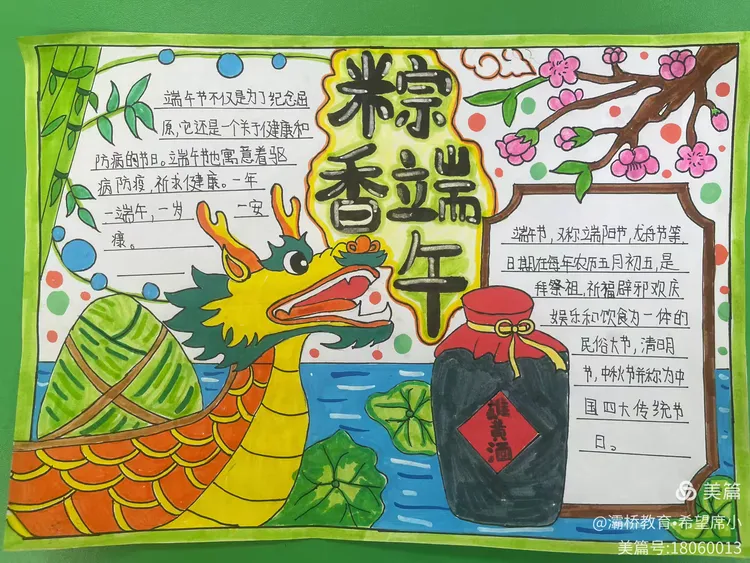 粽香端午
端午节不仅是为了纪念屈
原,它还是一个关于健康和
防病的节日。端午节也寓意着驱
病防疫,祈求健康。一年
一端午,一岁 一安
康。
端午节,又称端阳节,龙舟节等,
日期在每年农历五月初五,是
拜祭祖,祈福辟邪欢庆
娱乐和饮食为一体的
民俗大节,清明
节,中秋节并称为中
国四大传统节
日。
雄黄酒
美篇
@灞桥教育•希望席小
美篇号:18060013